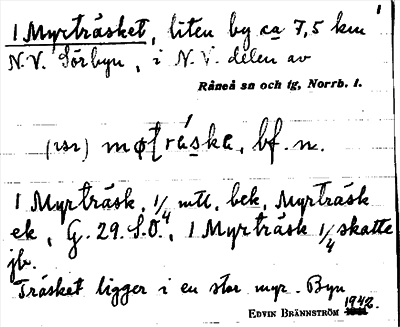 1 Myrträsket, liten by ca 7,5 km
N.V. Sörbyn, i N.V. delen av
Råneå sn och tg, Norrb. l.
(vsr) møt̩ráska, bf. n.
1 Myrträsk, 1/4 mtl, bek, Myrträsk
ek, G. 29. S.O., 1 Myrträsk 1/4 skatte
jb.
Träsket ligger i en stor myr. Byn
EDVIN BRÄNNSTRÖM 1942.